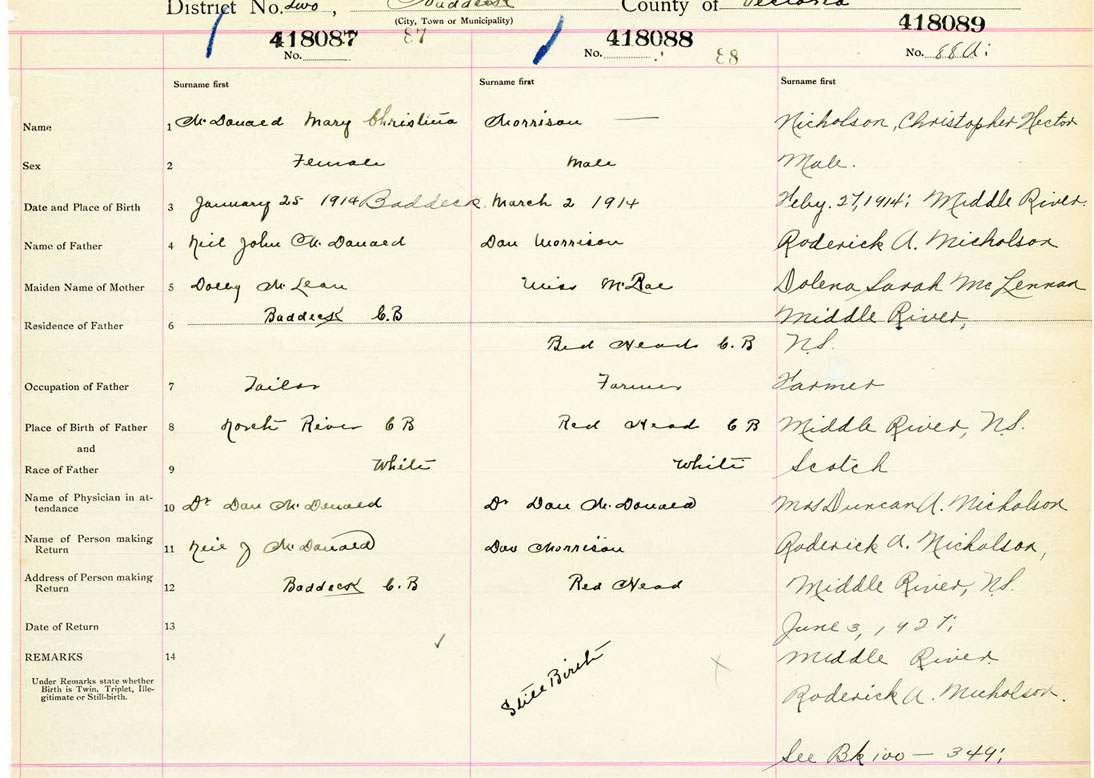 District No. two, Baddeck County of Victoria
(City, Town or Municipality)
418087 87 418088 418089
No. No. 88 No. 88A;
Surname first Surname first Surname first
Name 1 McDonald Mary Christina Morrison — Nicholson, Christopher Hector
Sex 2 Female Male Male.
Date and Place of Birth 3 January 25 1914 Baddeck. March 2 1914 Feby. 27, 1914; Middle River.
Name of Father 4 Neil John McDonald Dan Morrison Roderick A. Nicholson
Maiden Name of Mother 5 Dolly McLean Miss McRae Dolena Sarah McLennan
Residence of Father 6 Baddeck C.B Red Head C.B Middle River,
N.S.
Occupation of Father 7 Tailor Farmer Farmer
Place of Birth of Father 8 North River CB Red Head CB Middle River, N.S.
and
Race of Father 9 White White Scotch
Name of Physician in at-
tendance 10 Dr Dan McDonald Dr Dan McDonald Mrs Duncan A. Nicholson
Name of Person making
Return 11 Neil J McDonald Dan Morrison Roderick A. Nicholson,
Address of Person making
Return 12 Baddeck C.B Red Head Middle River, N.S.
Date of Return 13 June 3, 1927;
REMARKS 14 Still Birth Middle River
Under Remarks state whether
Birth is Twin, Triplet, Ille-
gitimate or Still-birth.
Roderick A. Nicholson.
See Bk 100 — 349;